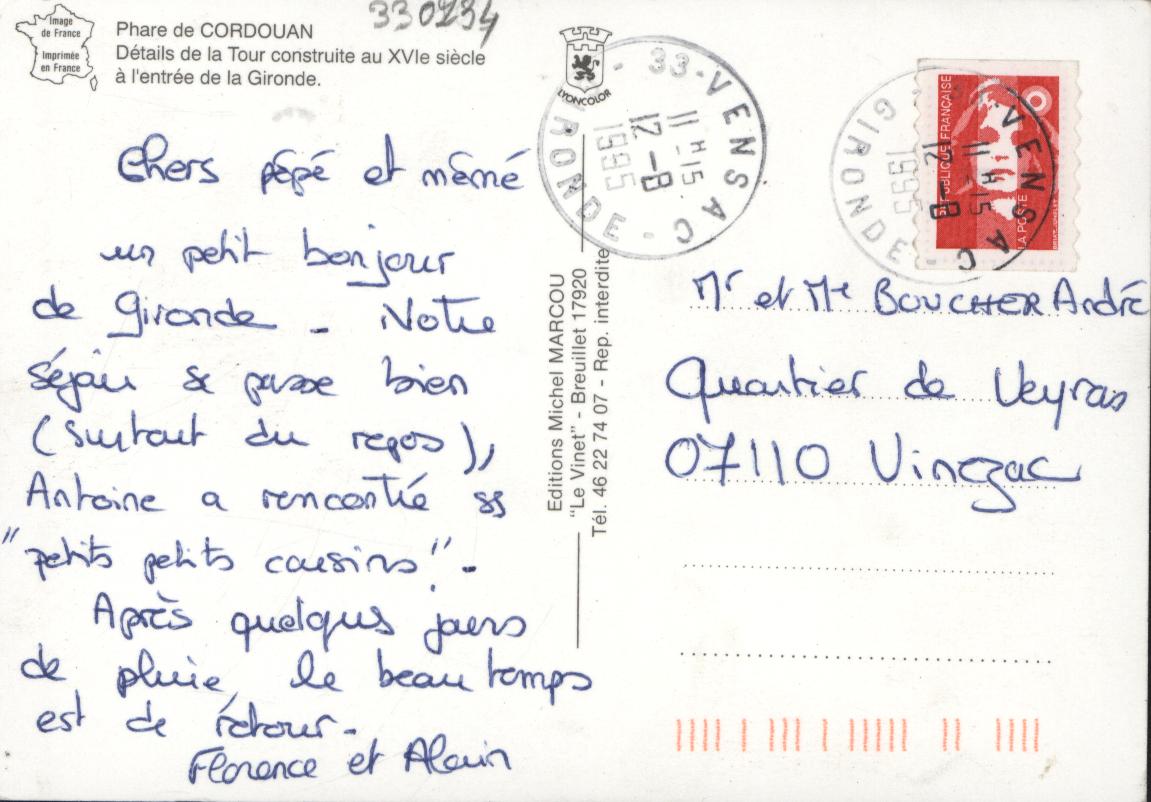 Image
de France
Imprimée
en France
330234
Phare de CORDOUAN
Détails de la Tour construite au XVIe siècle
à l'entrée de la Gironde.
Chers pépé et mémé
un petit bonjour
de Gironde - Notre
séjour se passe bien
(surtout du repos),
Antoine a rencontré ss
"petits petits cousins" -
Après quelques jours
de pluie, le beau temps
est de retour -
Florence et Alain
LYONCOLOR
33 - VENSAC
11 H 15
12 - 8
1995
GIRONDE
Editions Michel MARCOU
"Le Vinet" - Breuillet 17920
Tél. 46 22 74 07 - Rep. interdite
RÉPUBLIQUE FRANÇAISE
LA POSTE
VENSAC
11 H 15
12 - 8
1995
GIRONDE
Mr et Me BOUCHER André
Quartier de Veyras
07110 Vinezac